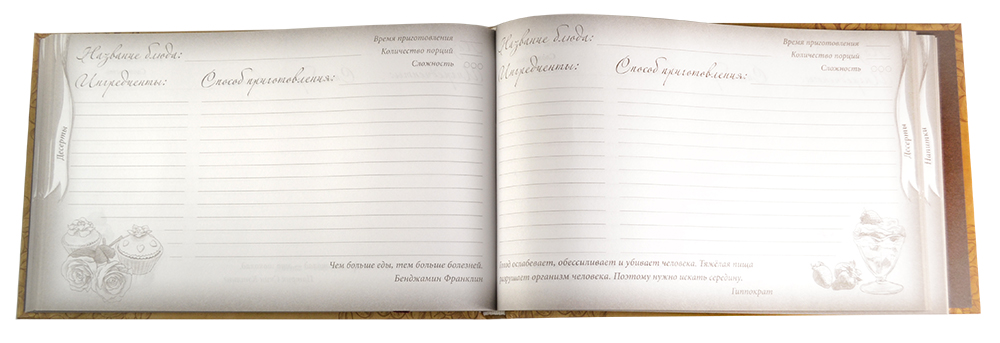 Название блюда:
Время приготовления
Количество порций
Сложность
Ингредиенты:
Способ приготовления:
Десерты
Чем больше еды, тем больше болезней.
Бенджамин Франклин
Название блюда:
Время приготовления
Количество порций
Сложность
Ингредиенты:
Способ приготовления:
Десерты
Напитки
ослабевает, обессиливает и убивает человека. Тяжёлая пища
разрушает организм человека. Поэтому нужно искать середину.
Гиппократ